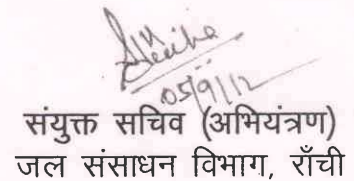 05/9/12
संयुक्त सचिव (अभियंत्रण)
जल संसाधन विभाग, राँची